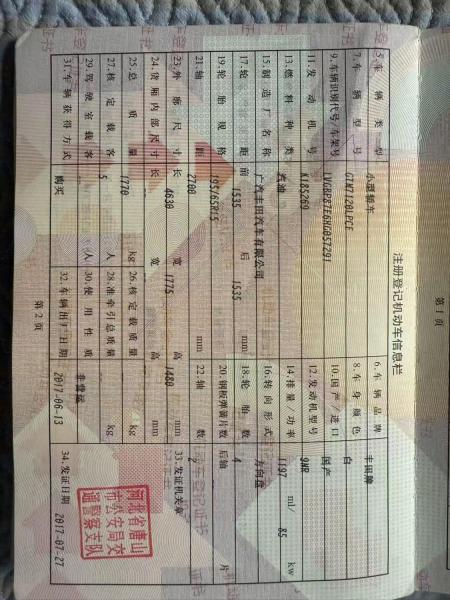 第 1 页
注册登记机动车信息栏
5.车辆类型 小型轿车 6.车辆品牌 丰田牌
7.车辆型号 GTM7120LPCE 8.车身颜色 白
9.车辆识别代号/车架号 LVGBPB7E6HG057291 10.国产/进口 国产
11.发动机号 K185269 12.发动机型号 9NR
13.燃料种类 汽油 14.排量/功率 1197 ml/ 85 kw
15.制造厂名称 广汽丰田汽车有限公司 16.转向形式 方向盘
17.轮距 前 1535 后 1535 mm 18.轮胎数 4
19.轮胎规格 195/65R15 20.钢板弹簧片数 后轴 片
21.轴距 2700 mm 22.轴数 2
23.外廓尺寸 长 4630 宽 1775 高 1480 mm 33.发证机关章
24.货厢内部尺寸 长 宽 高 mm
25.总质量 1770 kg 26.核定载质量 kg
27.核定载客 5 人 28.准牵引总质量 kg
29.驾驶室载客 人 30.使用性质 非营运
31.车辆获得方式 购买 32.车辆出厂日期 2017-06-13 34.发证日期 2017-07-27
河北省唐山
市公安局交
通警察支队
第 2 页